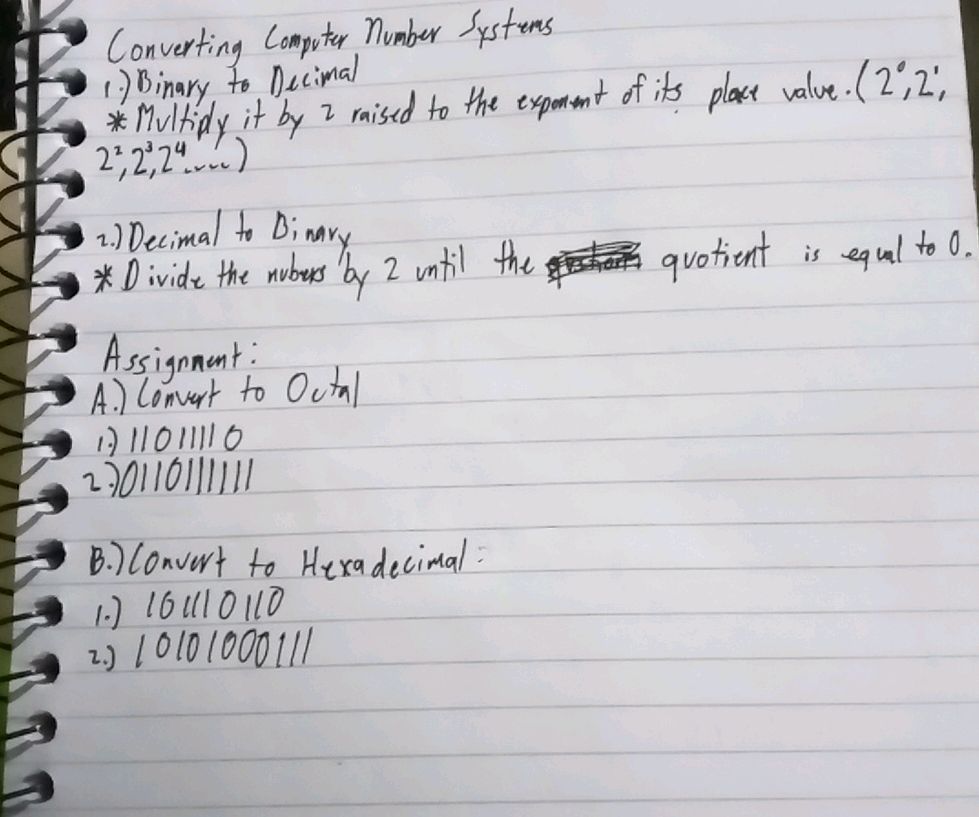 Converting Computer Number Systems
1.) Binary to Decimal
* Multiply it by 2 raised to the exponent of its place value. (2⁰, 2¹,
2², 2³, 2⁴ .....)
2.) Decimal to Binary
* Divide the nubers by 2 until the quotient is equal to 0.
Assignment:
A.) Convert to Octal
1.) 11011110
2.) 0110111111
B.) Convert to Hexadecimal:
1.) 101110110
2.) 10101000111